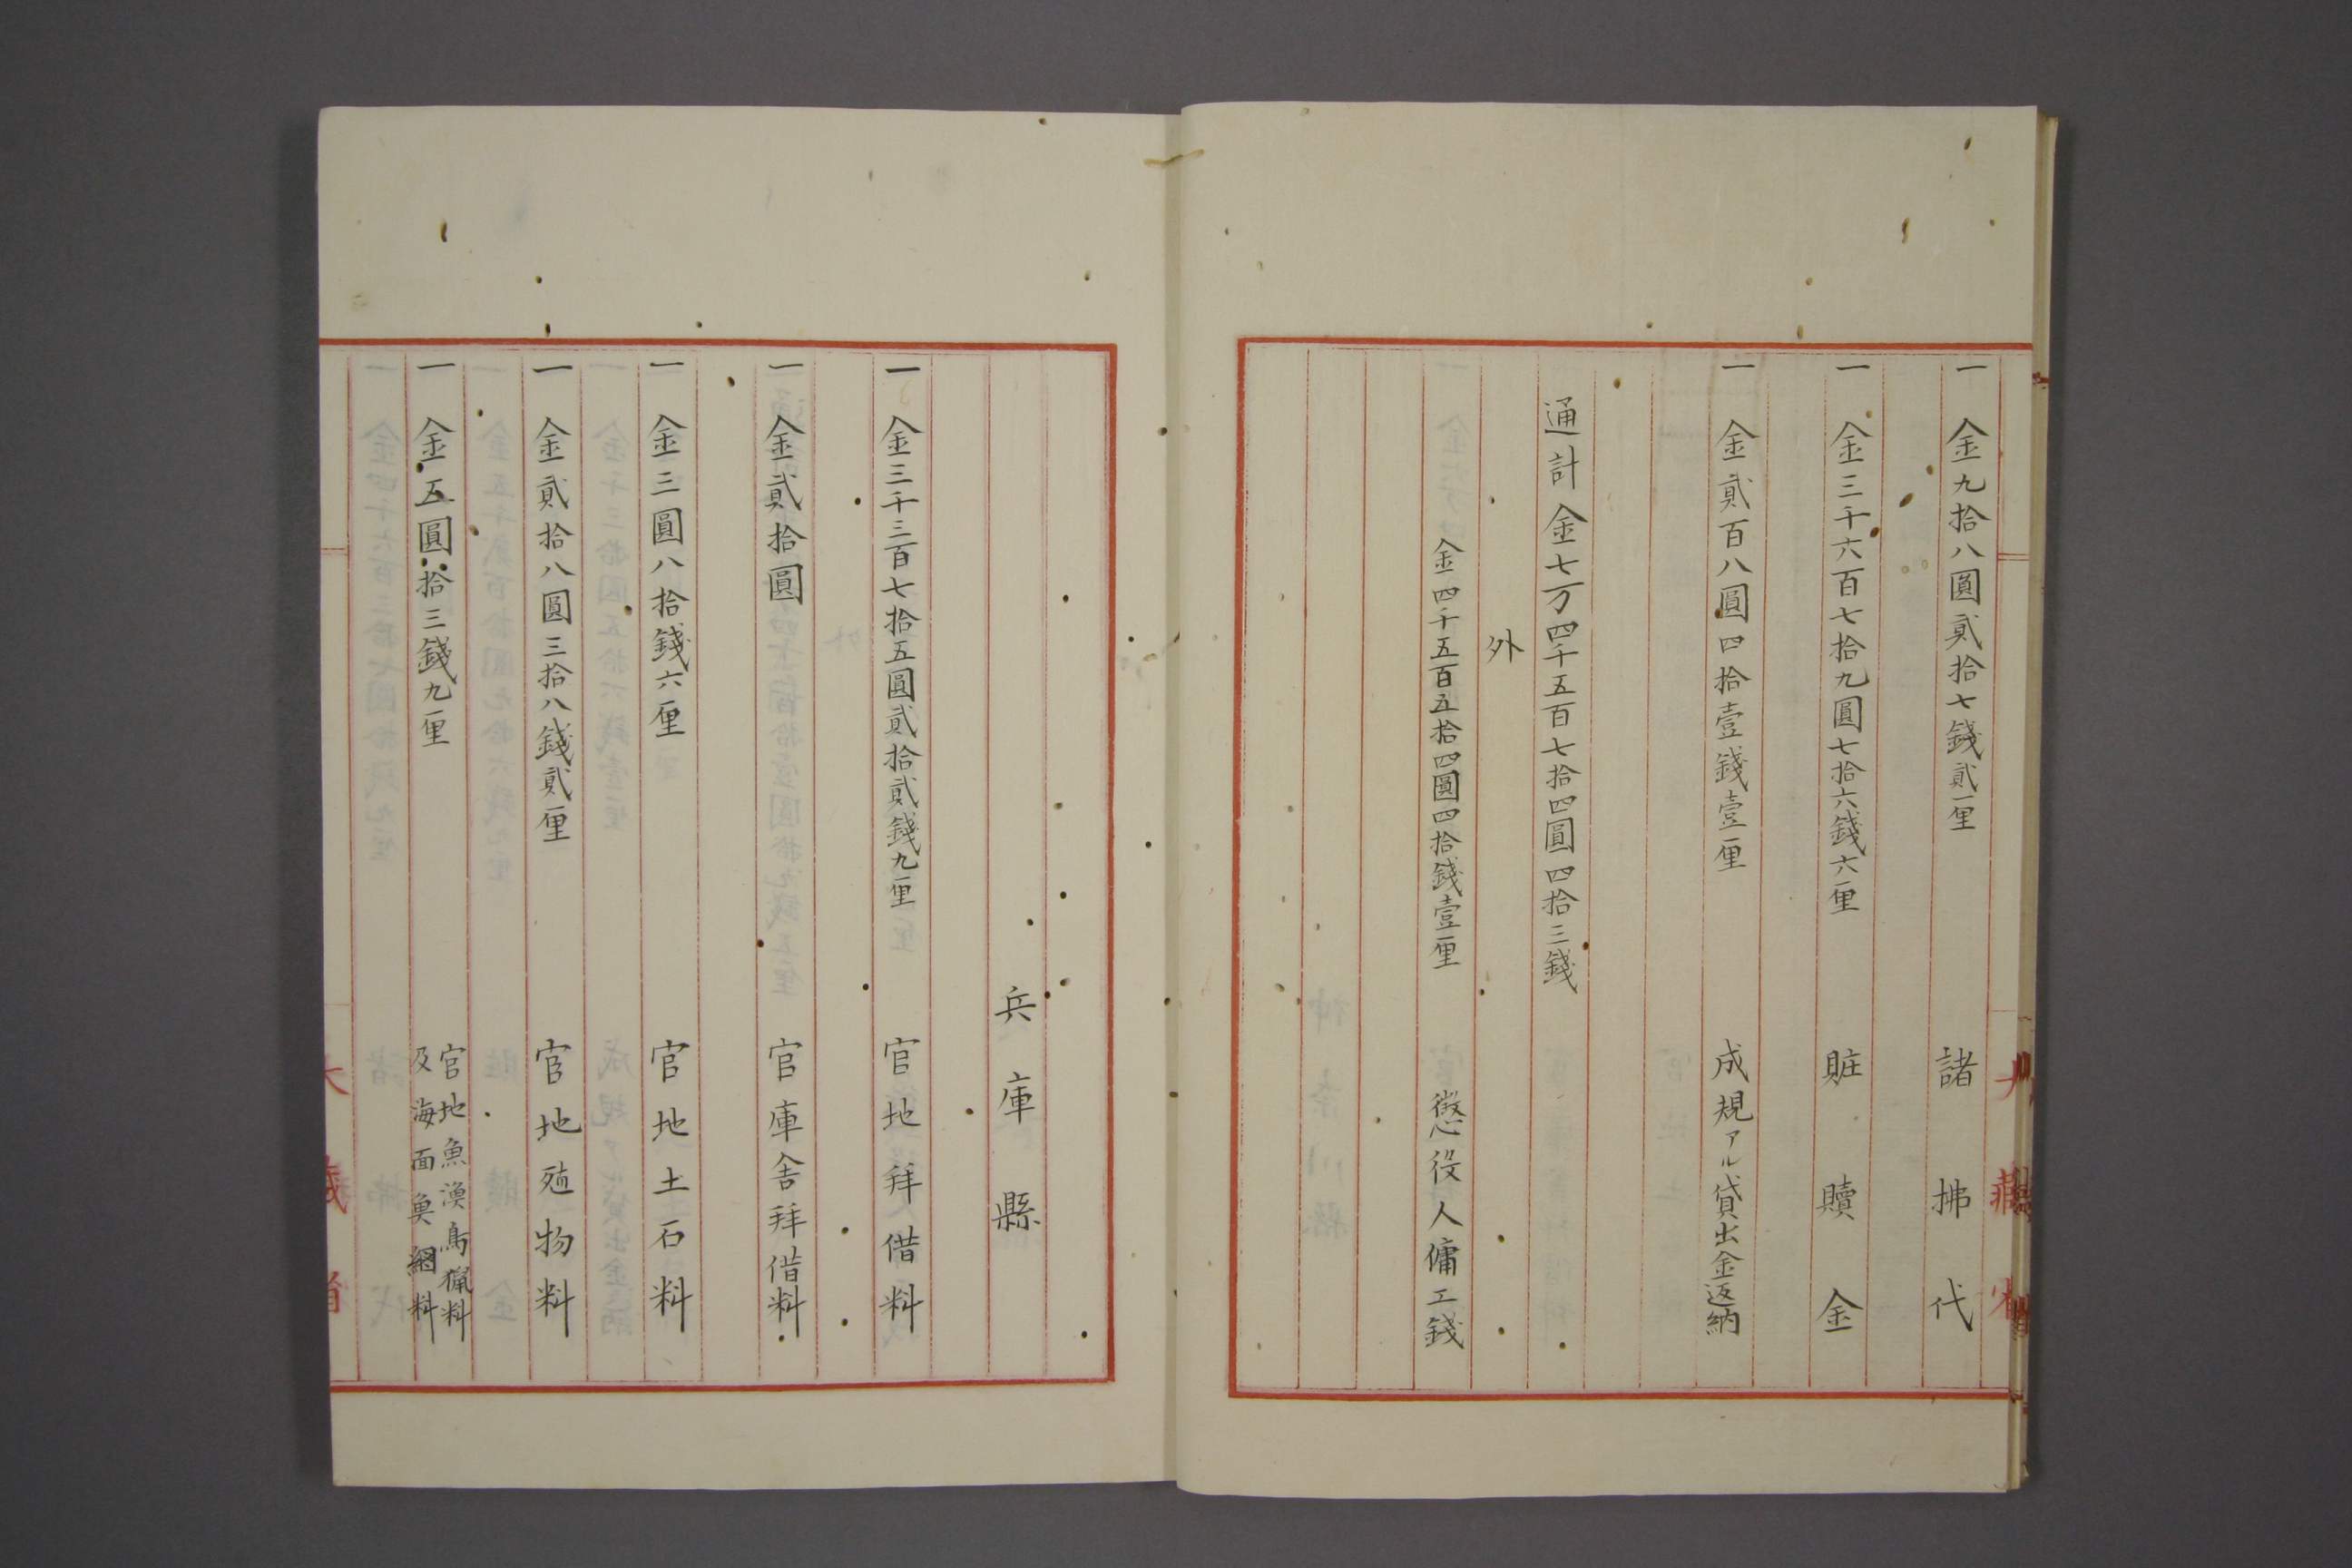 一 金九拾八圓貳拾七錢貳厘 諸拂代
一 金三千六百七拾九圓七拾六錢六厘 賍贖金
一 金貳百八圓四拾壹錢壹厘 成規アル貸出金返納
通計 金七万四千五百七拾四圓四拾三錢
外
金四千五百五拾四圓四拾錢壹厘 懲役人傭工錢
兵庫縣
一 金三千三百七拾五圓貳拾貳錢九厘 官地拜借料
一 金貳拾圓 官庫舎拜借料
一 金三圓八拾錢六厘 官地土石料
一 金貳拾八圓三拾八錢貳厘 官地殖物料
一 金五圓拾三錢九厘 官地魚漁鳥猟料
及海面魚網料
大藏省